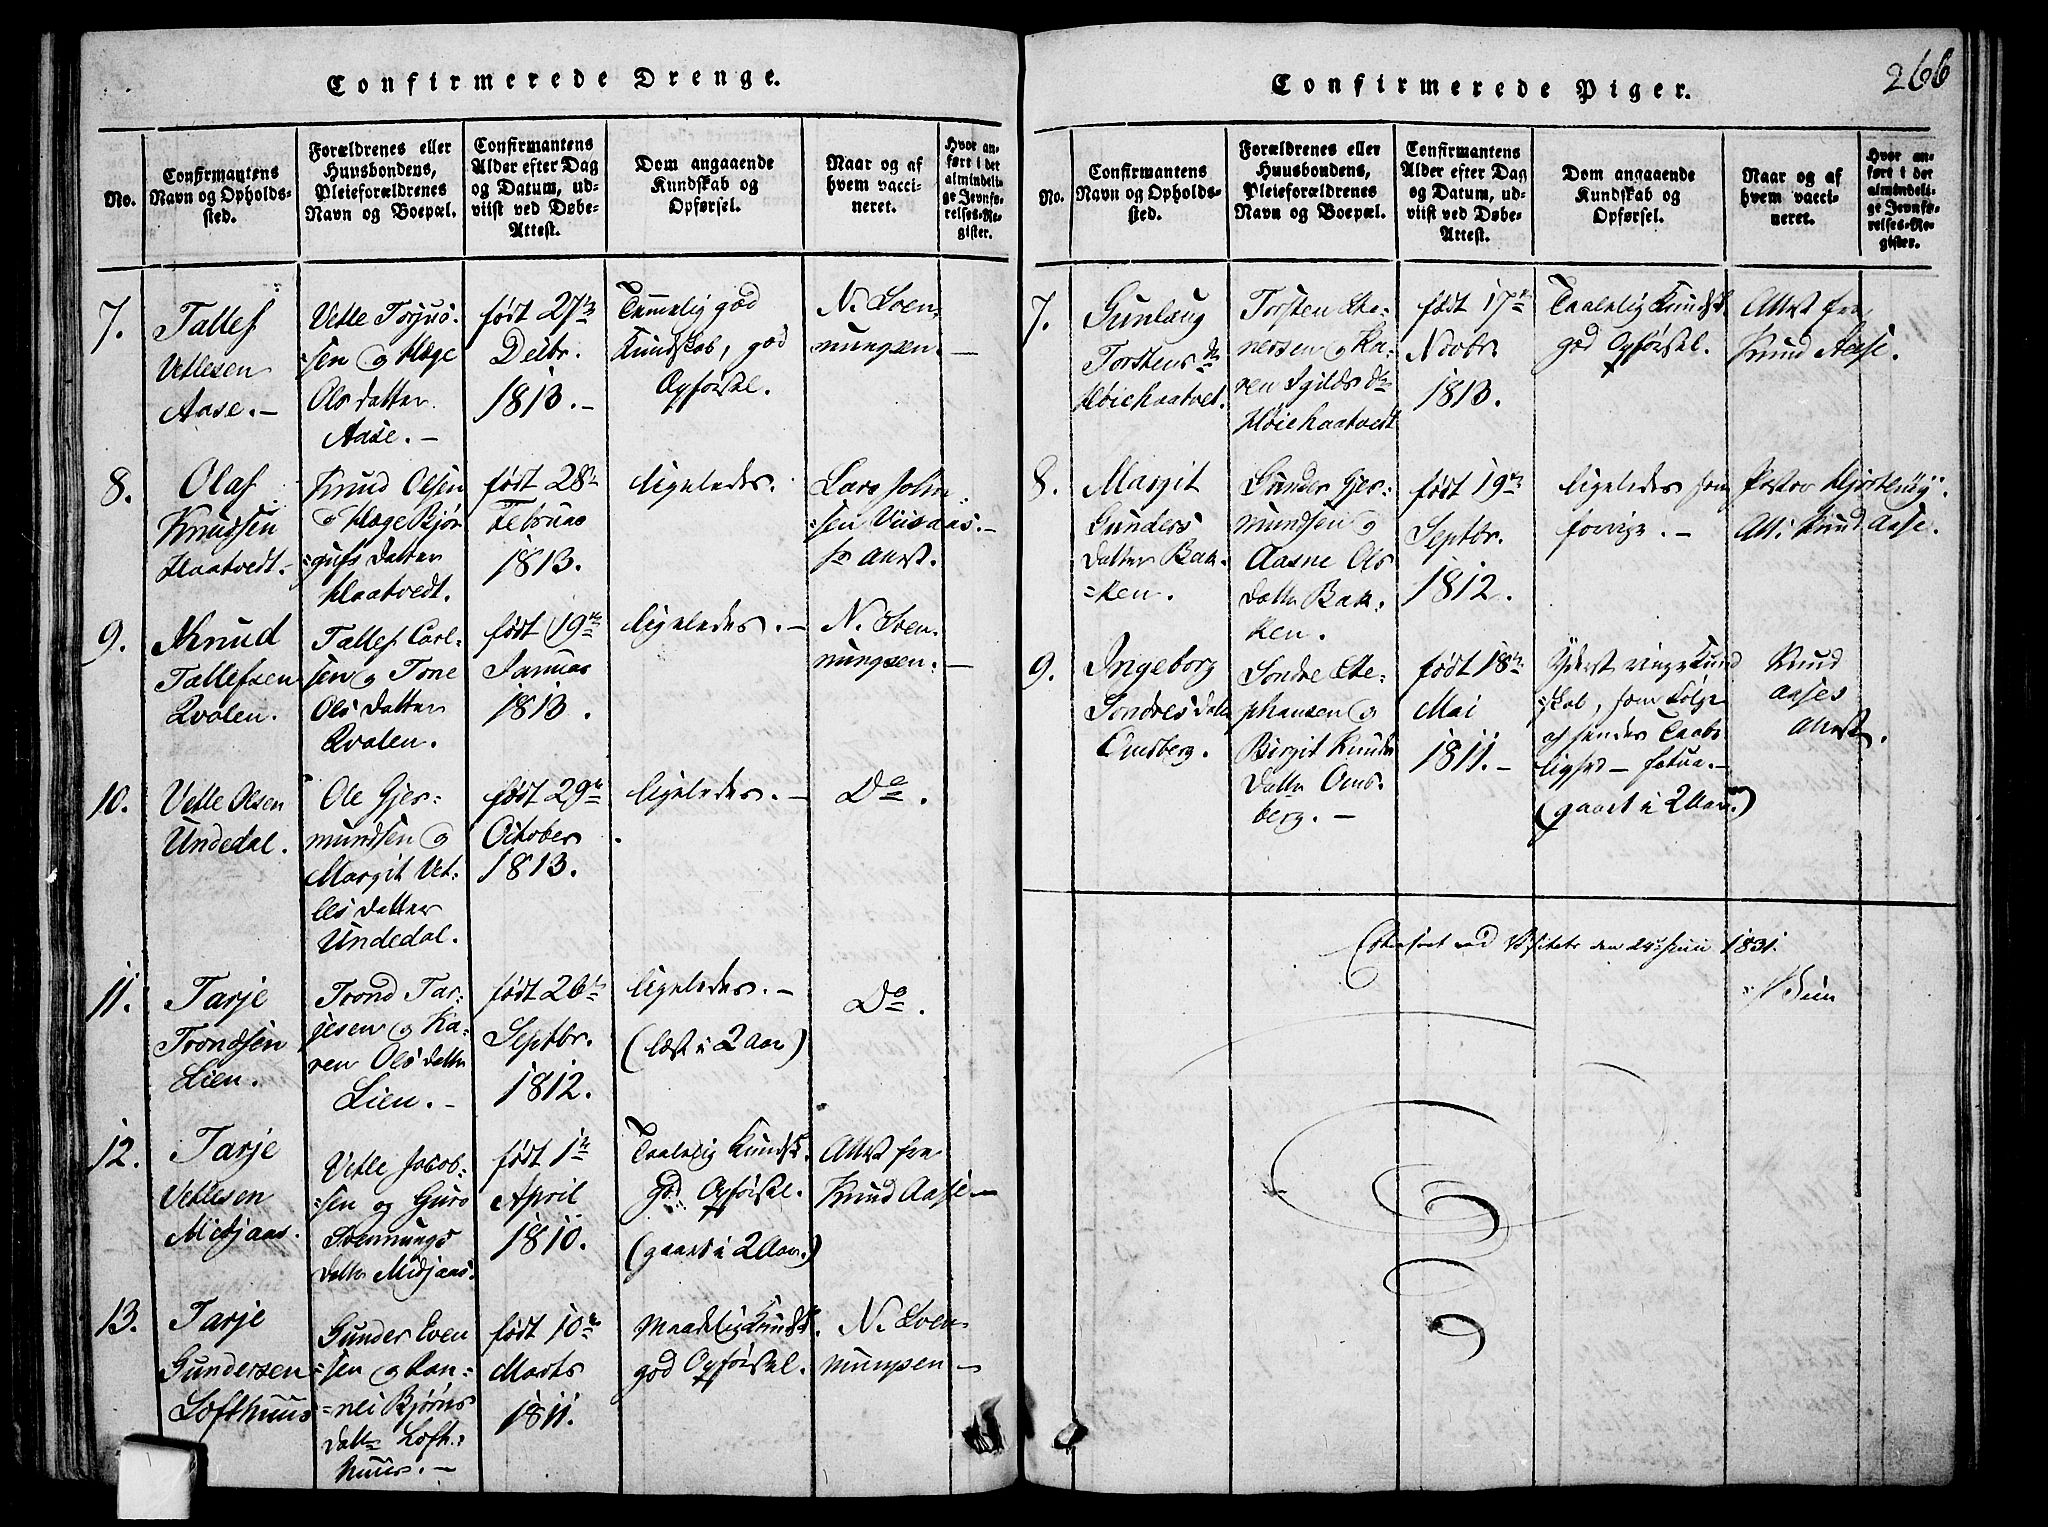 Confirmerede Drenge.
No.
Confirmantens
Navn og Opholds-
sted.
Forældrenes eller
Huusbondens,
Pleieforældrenes
Navn og Boepæl.
Confirmantens
Alder efter Dag
og Datum, ud-
viist ved Døbe-
Attest.
Dom angaaende
Kundskab og
Opførsel.
Naar og af
hvem vacci-
neret.
Hvor an-
ført i det
almindeli-
ge Jevnfø-
relses-Re-
gister.
7.
Tallef
Vetlesen
Aase. –
Vetle Torjus-
sen og Hæge
Olsdatter
Aase. –
født 27de
Decbr.
1813. –
Temmelig god
Kundskab, god
Opførsel.
N. Sven-
nungsen. –
8.
Olaf
Knudsen
Haatvedt. –
Knud Olsen
og Hæge Bjør-
gufs datter
Haatvedt.
født 28de
Februar
1813.
ligeledes.
Lars John-
sen
9.
Knud
Tallefsen
Qvalen.
Tallef Carl-
sen og Tone
Olsdatter
Qvalen.
født 19de
Januar
1813.
ligeledes. –
N. Sven-
nungsen. –
10.
Vetle Olsen
Undedal.
Ole Gjer-
mundsen og
Margit Vet-
les datter
Undedal.
født 29de
October
1813.
ligeledes. –
Do.
11.
Tarje
Trondsen
Lien.
Trond Tar-
jesen og Ka-
ren Olsdatter
Lien. –
født 26de
Septbr.
1812.
ligeledes. –
(læst i 2 Aar)
Do.
12.
Tarje
Vetlesen
Midjaas.
Vetle Jacob-
sen og Guro
Svennungs
datter Midjaas.
født 1te
April
1810.
Taalelig Kundsk.
god Opførsel.
(gaaet i 2 Aar.)
Attest fra
Knud Aase –
13.
Tarje
Gundersen
Lofthuus
Gunder Even
sen og Ran-
nei Bjørns
datter Loft-
huus. –
født 10de
Marts
1811.
Maadelig Kundsk.
god Opførsel.
N. Sven-
nungsen –
Confirmerede Piger.
266
No.
Confirmantens
Navn og Opholds-
sted.
Forældrenes eller
Huusbondens,
Pleieforældrenes
Navn og Boepæl.
Confirmantens
Alder efter Dag
og Datum, ud-
viist ved Døbe-
Attest.
Dom angaaende
Kundskab og
Opførsel.
Naar og af
hvem vacci-
neret.
Hvor an-
ført i det
almindeli-
ge Jevnfø-
relses-Re-
gister.
7.
Gunlaug
Torstens dr
Høiehaatvet.
Torsten
og Ka-
ren
Høiehaatvedt
født 17de
Novbr.
1813.
Taalelig Kundsk.
god Opførsel.
Attest fra
Knud Aase.
8.
Margit
Gunders
datter Bak-
ken.
Gunder Gjer-
mundsen og
Aasne Ols
datter Bak-
ken.
født 19de
Septbr.
1812.
ligeledes som
forrige. –
Pastor
Att: Knud Aase.
9.
Ingeborg
Sondres datter
Omsberg.
Sondre Ste-
phansen og
Birgit Knuds
datter Oms-
berg. –
født 18de
Mai
1811. –
Yderst ringe Kund
skab, som Følge
af hendes Taabe-
lighed –
(gaaet i 2 Aar.)
Knud
Aases
Attest.
ved Visitats den 24de Juni 1831.